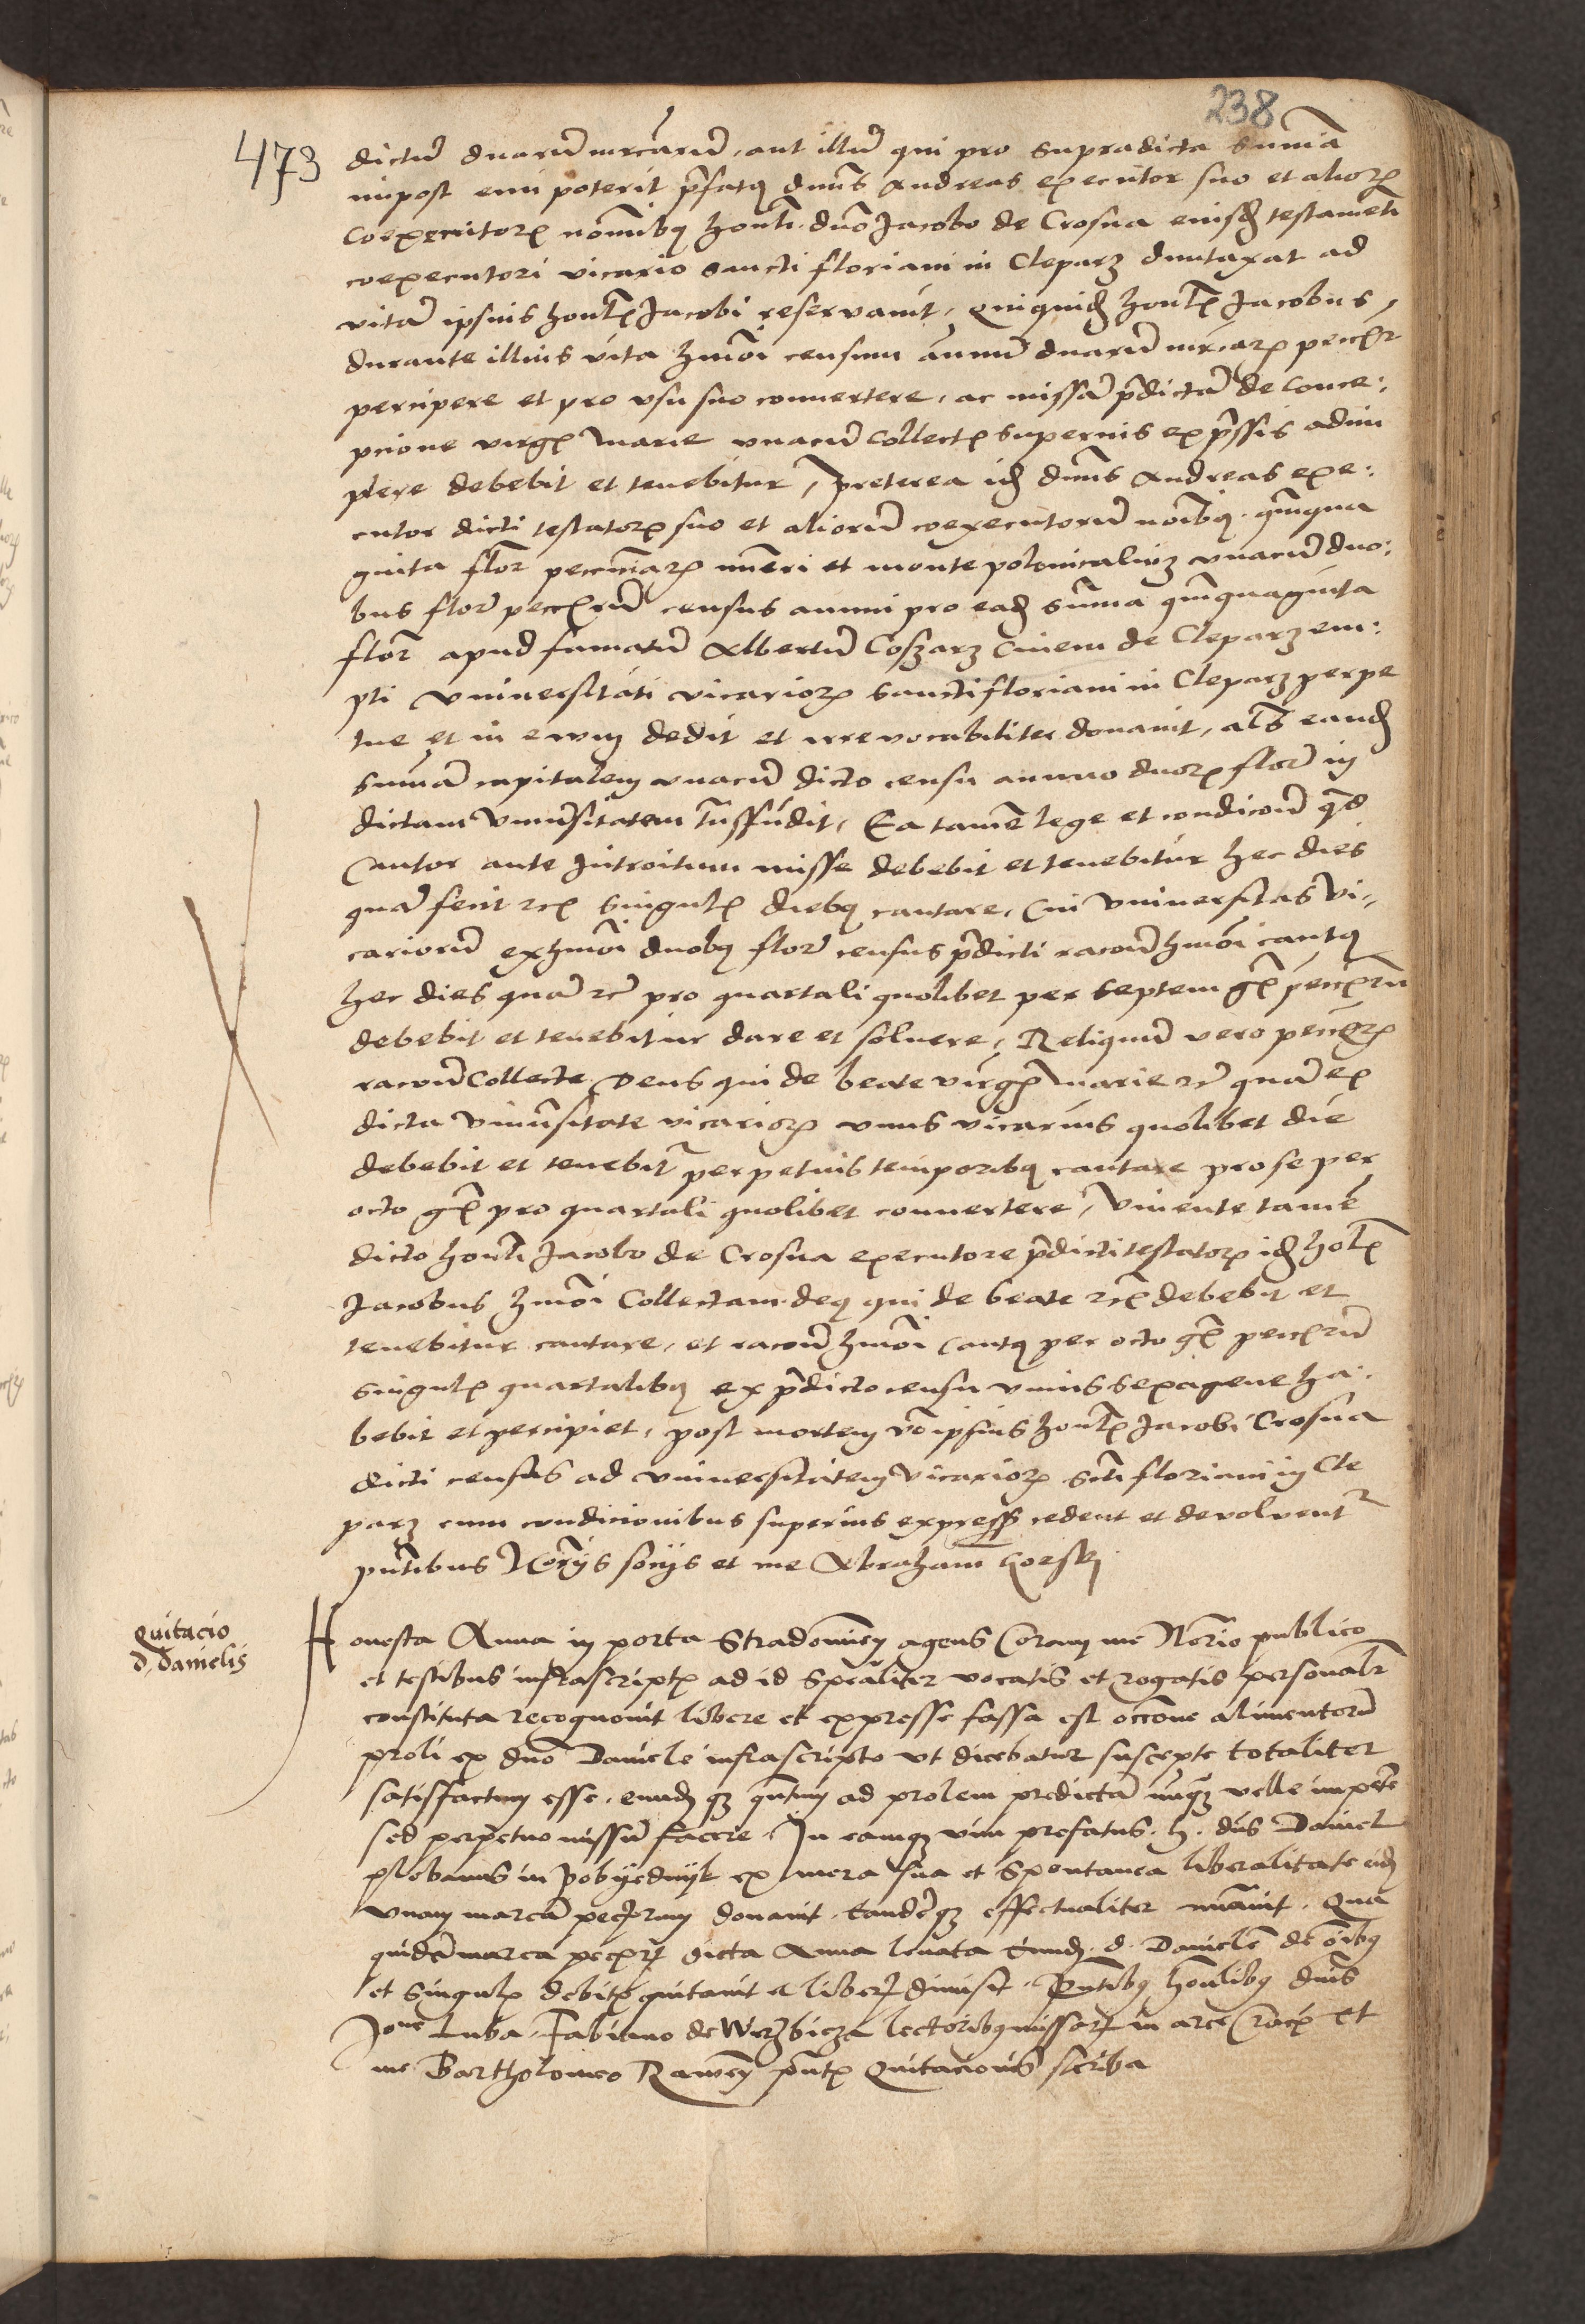 238
473
dictum duarum mrcarum, aut illum qui pro supradicta summa
inpost emi poterit prefatus dnus Andreas executor suo et aliorum
coexecutorum nominibus honti dno Jacobo de Crosna eiusdem testamenti
coexecutori vicario sancti floriani in Cleparz duntaxat ad
vitam ipsius hontis Jacobi reservavit, Quiquidem hontis Jacobus,
durante illius vita hmoi censum annuum duarum mrcarum
percipere et pro usu suo convertere, ac missam predictam de conce:
pcione virginis Marie unacum collectis supernis expressis adim
plere debebit et tenebitur, Preterea idem dnus Andreas exe:
cutor dicti testatoris suo et aliorum coexecutorum noibus quinqua
ginta flor pecuniarum numeri et monte polonicalium unacum duo:
bus flor census annui pro eadem summa quinquaginta
flor apud famatum Albertum Coszarz Civem de Cleparz em:
pti Universitati vicariorum sancti floriani in Cleparz perpe
tue et in ewum dedit et irrevocabiliter donavit, als eandem
summam capitalem unacum dicto censu annuo duorum florem in
dictam Universitatem transfudit, Ea tamen lege et condicione quod
Cantor ante Introitum misse debebit et tenebitur hec dies
quam fecit etc singulis diebus cantare, Cui Universitas Vi-
cariorum ex hmoi duobus flor census predicti racione hmoi cantus
hec dies quam etc pro quartali quolibet per septem gr
debebit et tenebitur dare et solvere, Reliquum vero
racione Collecte Deus qui de beate virginis Marie etc quam ex
dicta Universitate vicariorum unus vicarius quolibet die
debebit et tenebitur perpetuis temporibus cantare pro se per
octo gr pro quartali quolibet convertere, Vivente tamen
dicto honti Jacobo de Crosna executore predicti testatoris idem hontis
Jacobus hmoi Collectam deus qui de beate etc debebit et
tenebitur cantare, et racione hmoi cantus per octo gr
singulis quartalibus ex predicto censu unius sexagene ha:
bebit et percipiet, post mortem vero ipsius hontis Jacobi Crosna
dicti census ad universitatem Vicariorum scti floriani in Cle
parz cum condicionibus superius express cedent et devolventur
pntibus Notariis sociis et me Abraham
quitacio
d. Danielis
Honesta Anna in porta Stradomien agens Coram me Notrio publico
et testibus infrascriptis ad id specialiter vocatis et rogatis personalr
constituta recognovit libere et expresse fassa est occone alimentorum
proli ex dno Daniele infrascripto ut dicebatur suscepte totaliter
satisfactum esse, eundemqz quantum ad prolem predictam nunquam velle impetere
sed perpetuo missum facere. In eamqz vim prefatus. h. dns Daniel
plebanus in Pobyednyk ex mera sua et spontanea liberalitate eidem
unam marcam donavit. Eandemqz effectualiter nravit. Qua
quidem marca dicta Anna levata Eundem d. Danielem de oibus
et singulis debite quitavit et liberum dimisit. Pntibus honlibus dnis
Jone Luba, Fabiano de Wirzbicza lectoribus missarum in arce Crac et
me Bartholomeo Rawen pntis Quitacionis scriba